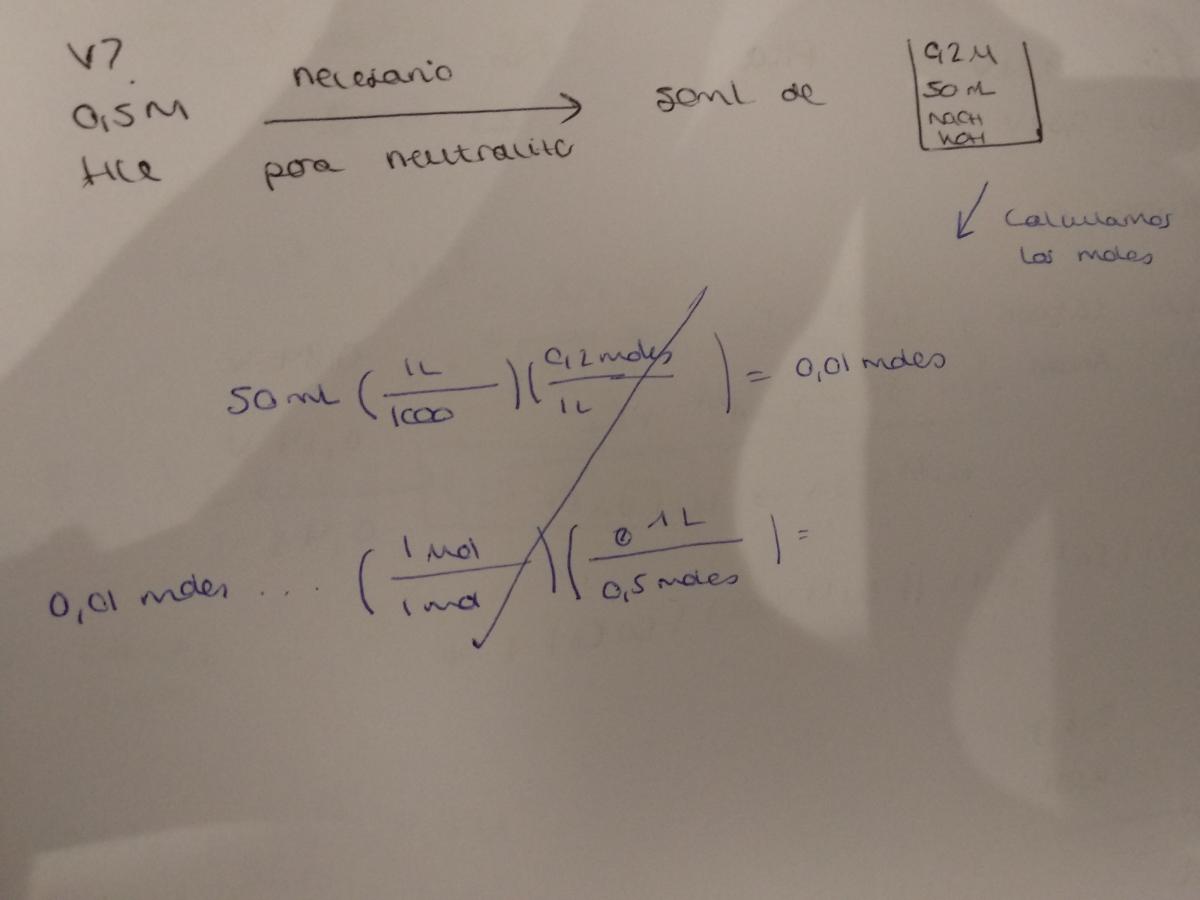 V?
0,5M
HCl
necesario
para neutralizar
50ml de
0,2M
50 mL
NaOH
KOH
Calculamos
los moles
50 mL (1L/1000)(0,2 moles/1L) = 0,01 moles
0,01 moles ... (1 mol/1 mol)(1L/0,5 moles) =